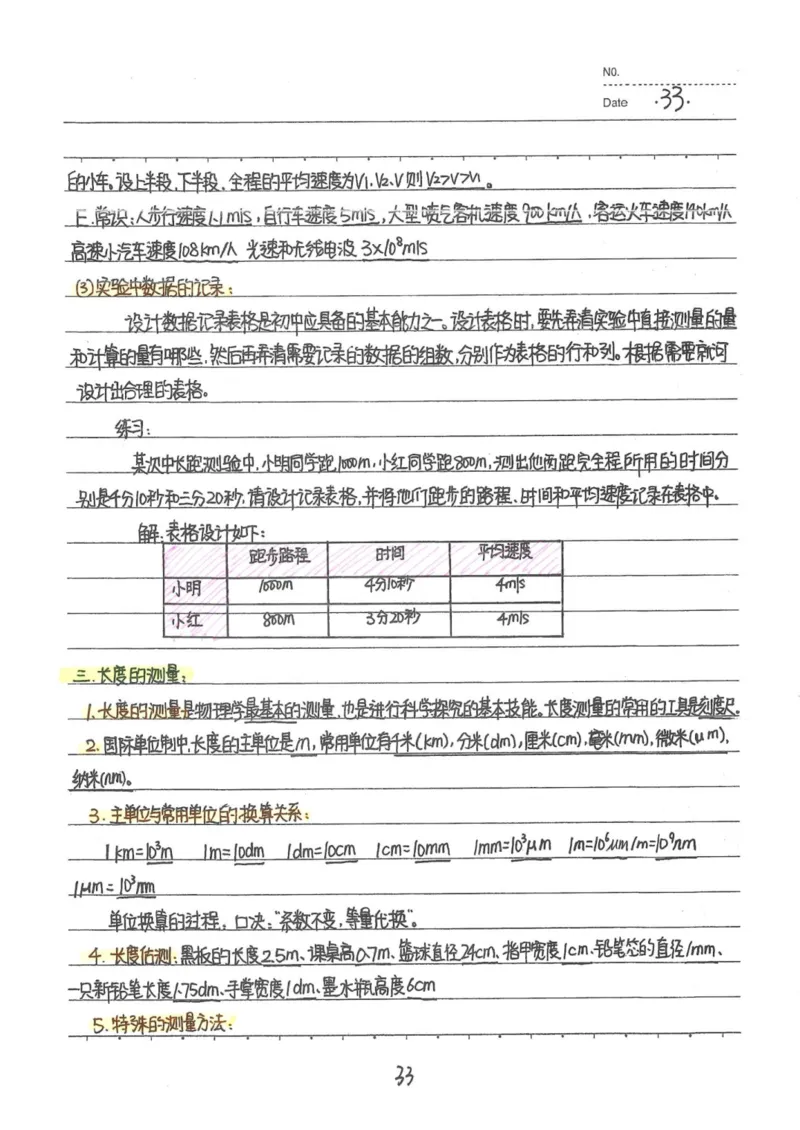 NO.
Date ·33·
的小车。设上半段、下半段、全程的平均速度为V1、V2、V则V2>V>V1。
E.常识:人步行速度1.1m/s,自行车速度5m/s,大型喷气客机速度900km/h,客运火车速度140km/h
高速小汽车速度108km/h 光速和无线电波 3×10⁸m/s
(3)实验中数据的记录:
设计数据记录表格是初中应具备的基本能力之一。设计表格时,要先弄清实验中直接测量的量
和计算的量有哪些,然后再弄清需要记录的数据的组数,分别作为表格的行和列。根据需要就可
设计出合理的表格。
练习:
某次中长跑测验中,小明同学跑1000m,小红同学跑800m,测出他两跑完全程所用的时间分
别是4分10秒和三分20秒,请设计记录表格,并将他们跑步的路程、时间和平均速度记录在表格中。
解:表格设计如下:
跑步路程 时间 平均速度
小明 1000m 4分10秒 4m/s
小红 800m 3分20秒 4m/s
三.长度的测量:
1.长度的测量是物理学最基本的测量,也是进行科学探究的基本技能。长度测量的常用的工具是刻度尺。
2.国际单位制中,长度的主单位是m,常用单位有千米(km),分米(dm),厘米(cm),毫米(mm),微米(μm),
纳米(nm)。
3.主单位与常用单位的换算关系:
1km=10³m 1m=10dm 1dm=10cm 1cm=10mm 1mm=10³μm 1m=10⁶μm 1m=10⁹nm
1μm=10³nm
单位换算的过程,口决:"系数不变,等量代换"。
4.长度估测:黑板的长度2.5m、课桌高0.7m、篮球直径24cm、指甲宽度1cm、铅笔芯的直径1mm、
一只新铅笔长度1.75dm、手掌宽度1dm、墨水瓶高度6cm
5.特殊的测量方法:
33